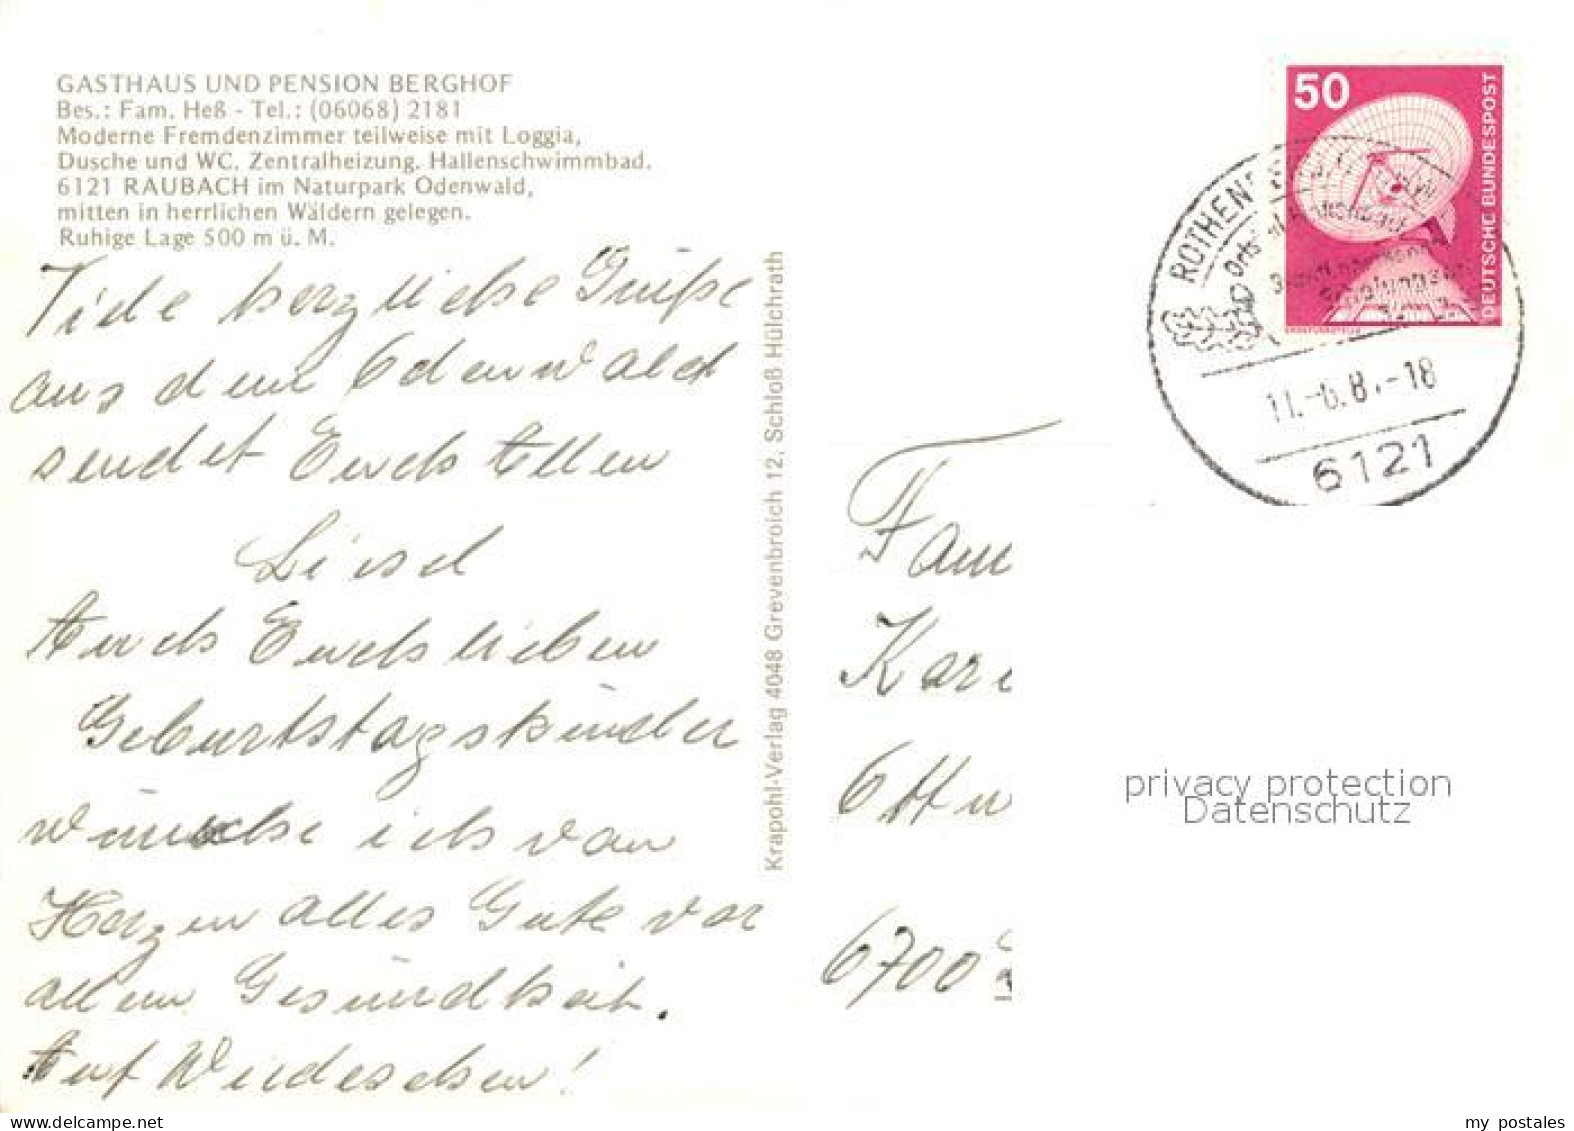 GASTHAUS UND PENSION BERGHOF
Bes.: Fam. Heß - Tel.: (06068) 2181
Moderne Fremdenzimmer teilweise mit Loggia,
Dusche und WC. Zentralheizung. Hallenschwimmbad.
6121 RAUBACH im Naturpark Odenwald,
mitten in herrlichen Wäldern gelegen.
Ruhige Lage 500 m ü. M.
Viele herzliche Grüße
aus dem Odenwald
sendet Euch Allen
Liesel
Auch Euch lieben
Geburtstagskinder
wünsche ich von
Herzen alles Gute vor
allem Gesundheit.
Auf Wiedesehen!
Krapohl-Verlag 4048 Grevenbroich 12, Schloß Hülchrath
50
DEUTSCHE BUNDESPOST
ROTHEN
11.-6.8.-18
6121
Fam
Kar
6700
privacy protection
Datenschutz
my postales